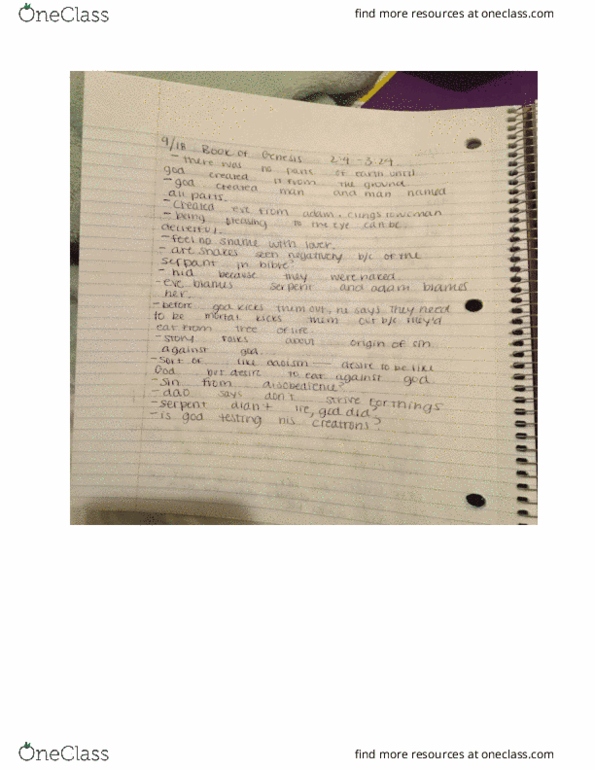 OneClass
find more resources at oneclass.com
9/18 Book of Genesis 2:4-3:24
- there was no plant of earth until
god created it from the ground.
- god created man and man named
all parts.
- created eve from adam, calls woman
- being pleasing to the eye can be
deceitful.
- feel no shame with lover.
- are snakes seen negatively b/c of the
serpant in bible?
- hid because they were naked.
- eve blames serpent and adam blames
her.
- before god kicks them out, he says they need
to be mortal kicks them out b/c they'd
eat from tree of life.
- story about origin of sin
against god.
- sort of like daoism desire to be like
God but desire to eat against god
- sin from disobedience?
- dao says don't strive for things
- serpent didn't lie, god did?
- is god testing his creations?
OneClass
find more resources at oneclass.com